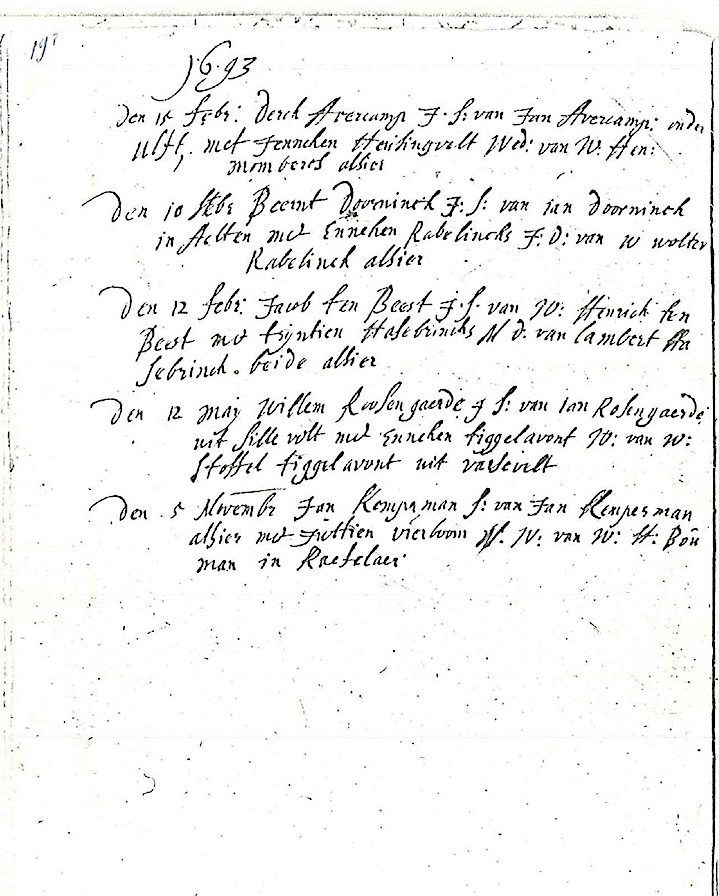 191
1693
Den 15 febr: Derck Avercamp J. S: van Jan Avercamp: onder
Ulft, met Jenneken Heusingvelt Wed: van W. Hen:
momberes alhier
Den 10 febr Beernt Doorninck J: S: van ian Doorninck
in Aelten met Enneken Rabelincks J: D: van w wolter
Rabelinck alhier
Den 12 febr: Jacob ten Beest J. S. van W: Henrick ten
Beest met tryntien HaSebrincks M d: van Lambert Ha
Sebrinck. beide alhier
Den 12 may Willem Roosengaerde J S: van ian Rosengaerde
uit Sillevolt met Enneken tiggelavont W: van w:
Stoffel tiggelavont uit varsevelt
Den 5 Novembr Jan Kemperman S: van Jan Kemperman
alhier met Juttien vierboom W: van W: H: Bou
man in Raesfelaer